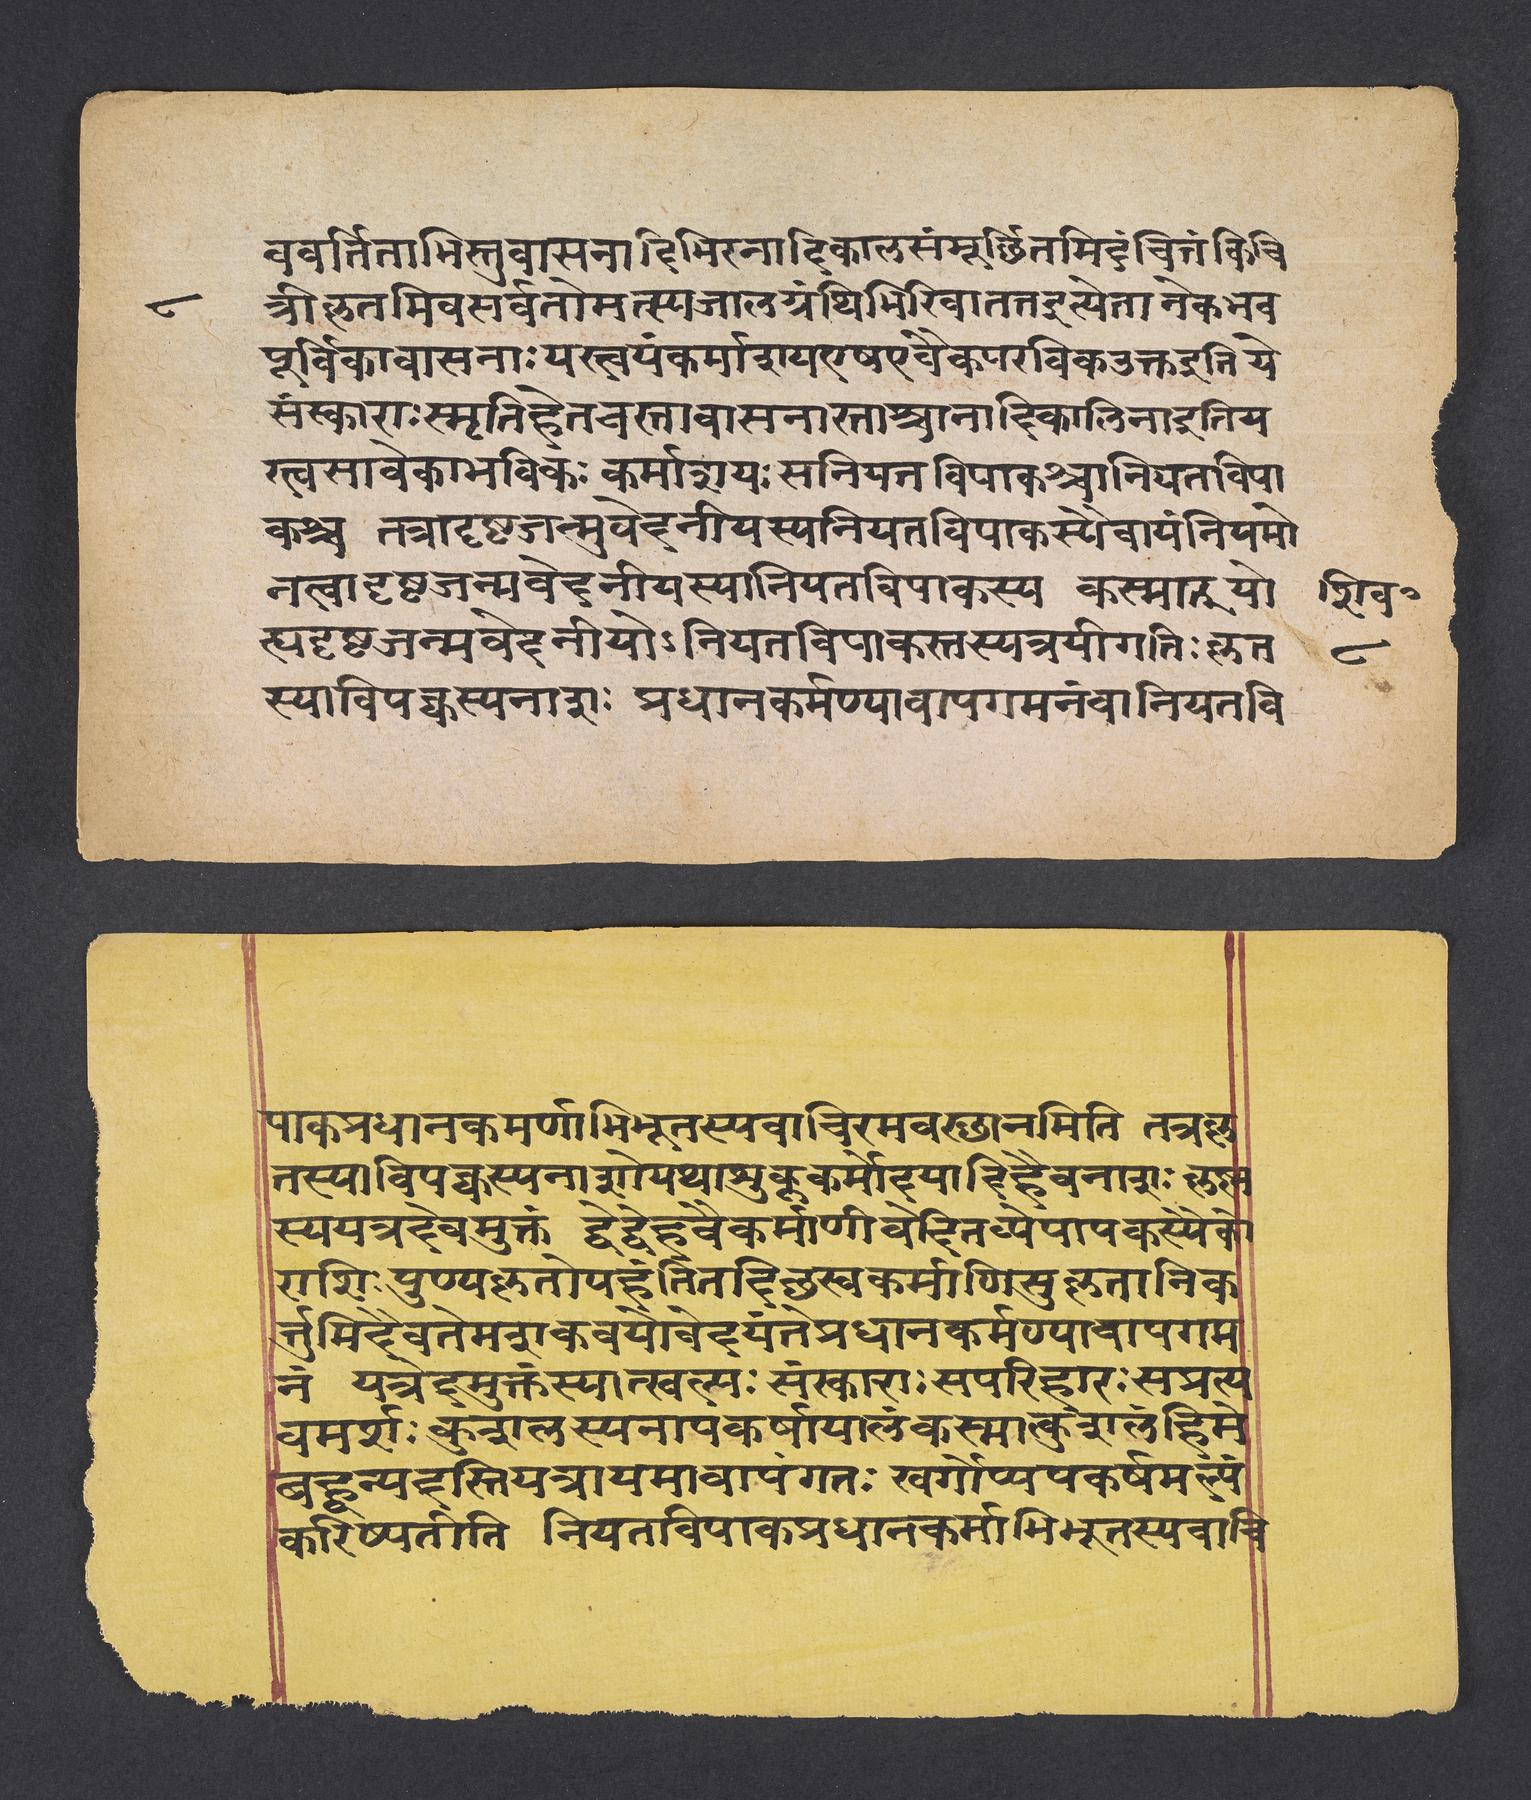 ववर्तिताभिस्तुवासनादिभिरनादिकालसंमूर्छितमिदंचित्तंविचि
८
त्रीकृतमिवसर्वतोमत्स्यजालग्रंथिभिरिवाततइत्येताअनेकभव
पूर्विकावासनाः यस्त्वयंकर्माशयएषएवैकपरविकउक्तइतिये
संस्काराः स्मृतिहेतवस्तावासनास्ताश्चानादिकालिनाइतिय
स्त्वसावेकाभविकः कर्माशयः सनियतविपाकश्चानियतविपा
कश्च तत्रादृष्टजन्मुवेदनीयस्यनियतविपाकस्यैवायंनियमो
नत्वादृष्टजन्मवेदनीयस्यानियतविपाकस्य कस्मात् यो
शिव॰
त्यदृष्टजन्मवेदनीयोऽनियतविपाकस्तस्यत्रयीगतिः कृत
८
स्याविपक्वस्यनाशः प्रधानकर्मण्यावापगमनंवानियतवि
पाकप्रधानकमर्णाभिभूतस्यवाचिरमवस्थानमिति तत्रकृ
तस्याविपक्वस्यनाशोयथाशुक्लकर्मोदयादिहैवनाशः कृष्ण
स्ययत्रहेवमुक्तं द्वेद्वेहवैकर्माणीवेदितव्येपापकस्यैको
राशिः पुण्यकृतोपहंतितदिछस्वकर्माणिसुकृतानिक
र्त्तुमिहैवतेमशकवयोवेदयंतेप्रधानकर्मण्यावापगम
नं यत्रेदमुक्तंस्यात्स्वल्पः संस्काराः सपरिहारः सप्रत्य
वमर्शः कुशलस्यनापकर्षायालंकस्मात्कुशलंहिमे
बहून्यदस्तियत्रायमावापंगतः स्वर्गोप्यपकर्षमल्पं
करिष्यतीति नियतविपाकप्रधानकर्माभिभूतस्यवाचि